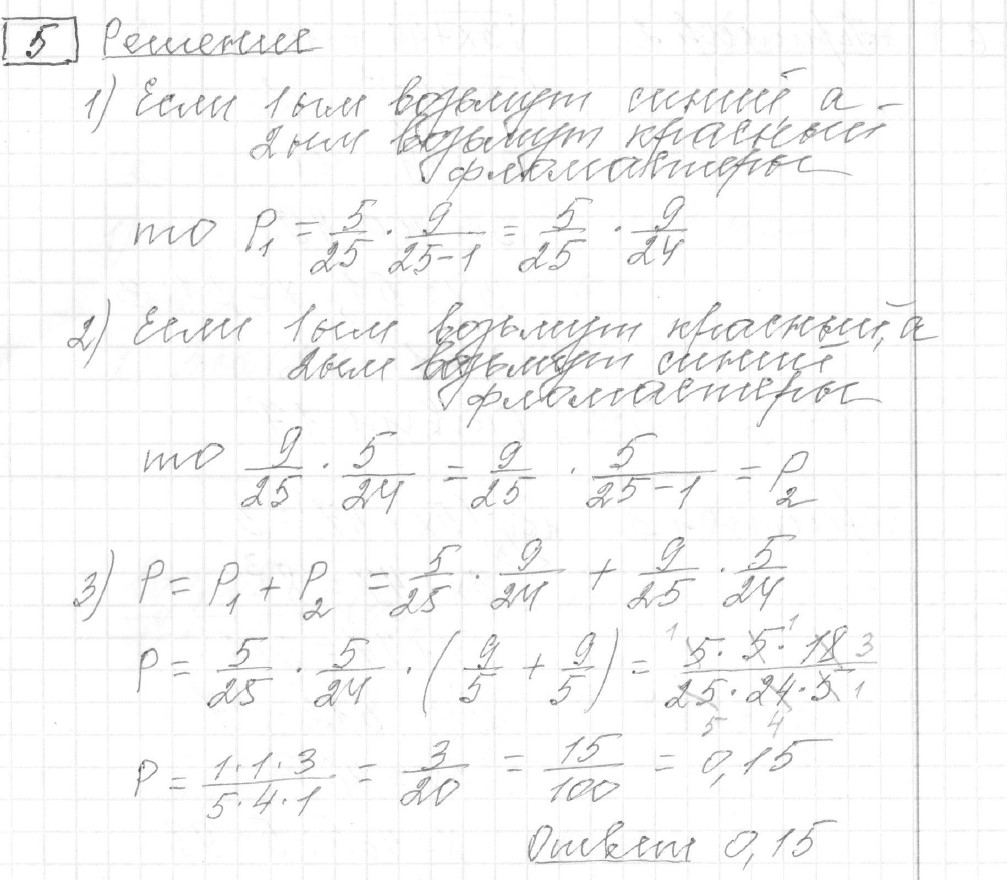 5 Решение
1) Если 1ым возьмут синий, а
2ым возьмут красный
фломастеры
то P₁ = 5/25 · 9/(25-1) = 5/25 · 9/24
2) Если 1ым возьмут красный, а
2ым возьмут синий
фломастеры
то 9/25 · 5/24 = 9/25 · 5/(25-1) = P₂
3) P = P₁ + P₂ = 5/25 · 9/24 + 9/25 · 5/24
P = 5/25 · 5/24 · (9/5 + 9/5) = (5 · 5 · 18)/(25 · 24 · 5) 1 1 3 5 4 1
P = (1·1·3)/(5·4·1) = 3/20 = 15/100 = 0,15
Ответ 0,15